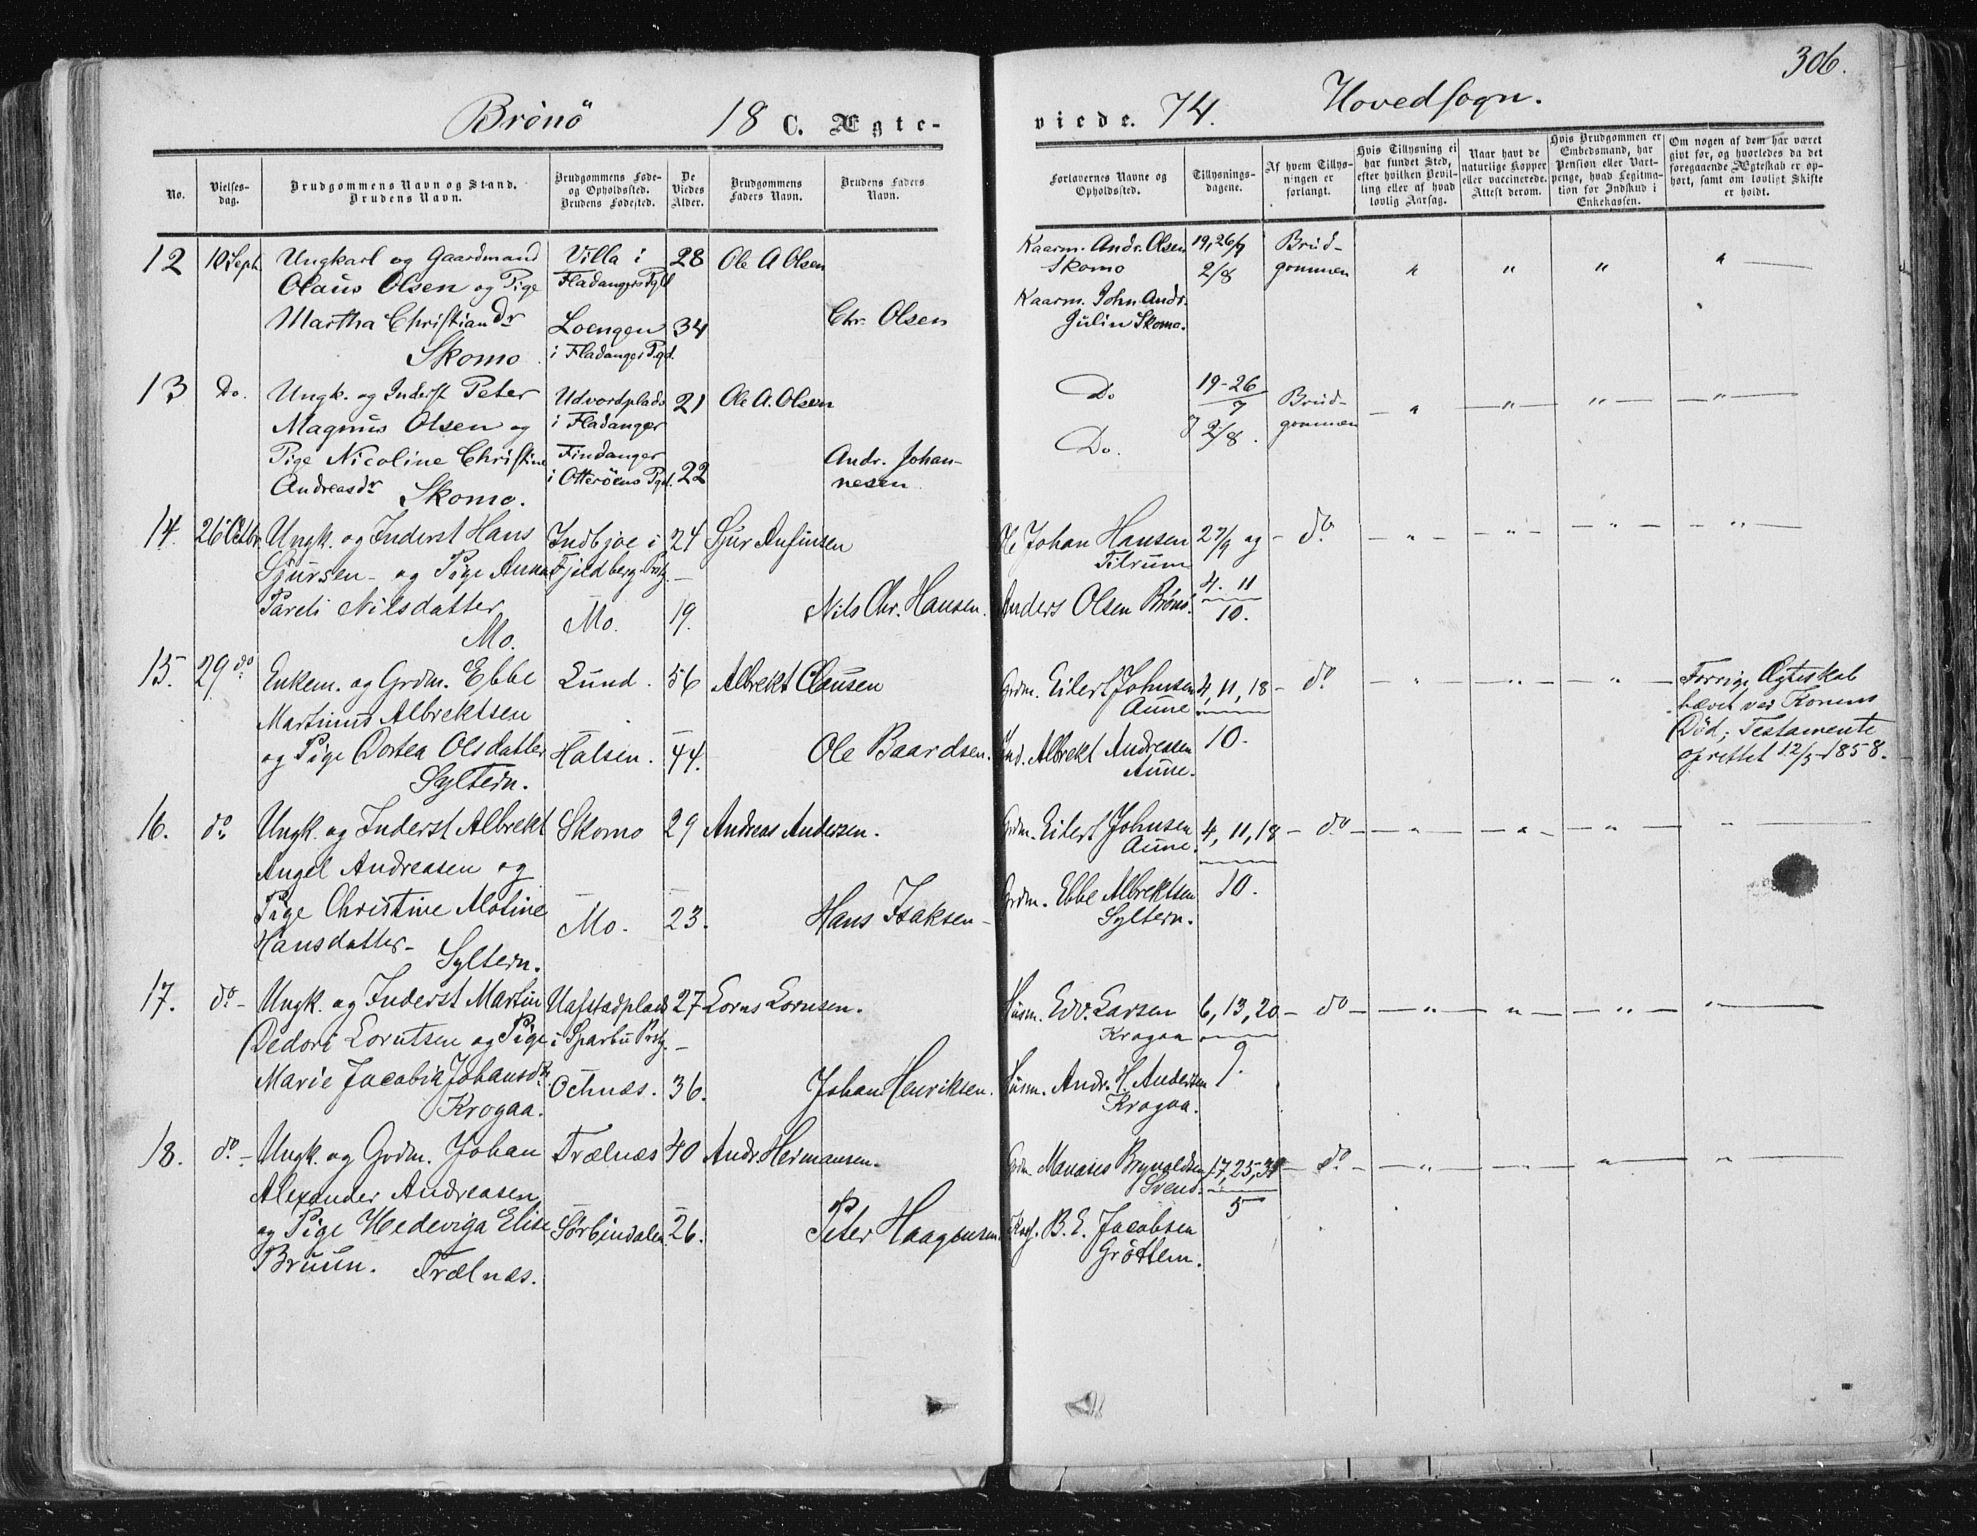 306.
Brönö 18 C. Ægte-
viede. 74. Hovedsogn.
No.
Vielses-
dag.
Brudgommens Navn og Stand.
Brudens Navn.
Brudgommens Føde-
og Opholdssted.
Brudens Fødested.
De
Viedes
Alder.
Brudgommens
Faders Navn.
Brudens Faders
Navn.
Forlovernes Navne og
Opholdssted.
Tillysnings-
dagene.
Af hvem Tillys-
ningen er
forlangt.
Hvis Tillysning ei
har fundet Sted,
efter hvilken Bevil-
ling eller af hvad
lovlig Aarsag.
Naar havt de
naturlige Kopper
eller vaccinerede.
Attest derom.
Hvis Brudgommen er
Embedsmand, har
Pension eller Vart-
penge, hvad Legitma-
tion for Indskud i
Enkekassen.
Om nogen af dem har været
givt før, og hvorledes da det
foregaaende Ægteskab er op-
hørt, samt om lovligt Skifte
er holdt.
12 10 Sept. Ungkarl og Gaardmand Villa i 28 Ole A Olsen Kaarm. Andr. Olsen 19, 26/7 Brud-
Olaus Olsen og Pige Fladangers Pgld Skomo 2/8 gommen " " " "
Kaarm. John Andr.
Martha Christiandr Loengen 34 Chr. Olsen Julin Skomo.
Skomo i Fladanger Pgd.
13 Do. Ungk. og Inderst Peter Udvordplads 21 Ole A. Olsen Do 19-26/7 Brud- " " " "
Magnus Olsen og i Fladanger 2/8. gommen
Pige Nicoline Christine Findanger Andr. Johan- Do.
Andreasdr Skomo. i Otteröens Pgd. 22 nesen
14. 26 Octbr. Ungk. og Inderst Hans Indbjoe i 24 Sjur Anfinsen Johan Hansen 27/9 og do " " " "
Sjursen - og Pige Anna Fjeldberg Prstg. Tilrum
Pareli Nilsdatter Mo. 19. Nils Chr. Hansen. Anders Olsen Brönö. 4. 11
Mo. 10.
15. 29 do Enkem. og Grdm. Ebbe Lund. 56 Albrekt Clausen Grdm. Eilert Johnsen 4, 11, 18 - do " " " Forrige Ægteskab
Martinus Albrektsen Aune hævet ved Konens
og Pige Dortea Olsdatter Halsen. 44. Ole Baardsen. Ind. Albrekt Andreasen 10. Död; Testamente
Syltern. Aune. oprettet 12/5 1858.
16. do Ungk. og Inderst Albrekt Skomo 29 Andreas Andersen. Grdm. Eilert Johnsen 4, 11, 18 - do - " " " "
Angel Andreasen og Aune.
Pige Christine Moline Mo. 23. Hans Isaksen - Grdm. Ebbe Albrektsen 10.
Hansdatter - Syltern. Syltern.
17. do - Ungk. og Inderst Martin Uafstadplads 27 Lorns Lornsen. Husm. Edv. Larsen 6, 13, 20 - do - " " " "
Dedori Lorntsen og Pige i Sparbu Prstg. Krogaa
Marie Jacobia Johansdtr. Ochnæs. 36. Johan Henriksen. Husm. Andr. H. Andersen 9.
Krogaa. Krogaa.
18. do - Ungk. og Grdm. Johan Trælnæs 40 Andr. Hermansen. Grdm. Manases Brynaldsen 17, 25, 31 - do - " " " "
Alexander Andreasen Svend. 5
og Pige Hedeviga Elise Sörbindalen 26. Peter Haagensen. B. E. Jacobsen
Bruun. Trælnæs. Gröttem.